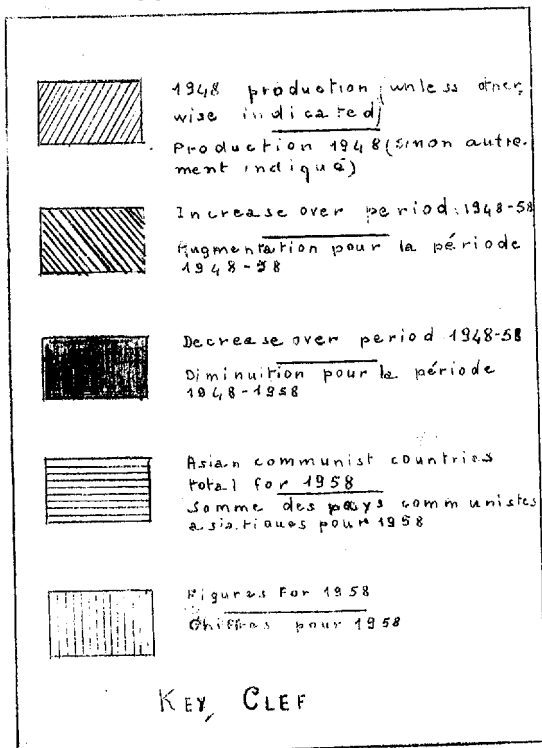 1948 production (unless other,
wise indicated)
Production 1948 (sinon autre.
ment indiqué)
Increase over period: 1948-58
Augmentation pour la période
1948-58
Decrease over period 1948-58
Diminuition pour la période
1948-1958
Asian communist countries
total for 1958
Somme des pays communistes
asiatiques pour 1958
Figures For 1958
Chiffres pour 1958
KEY, CLEF